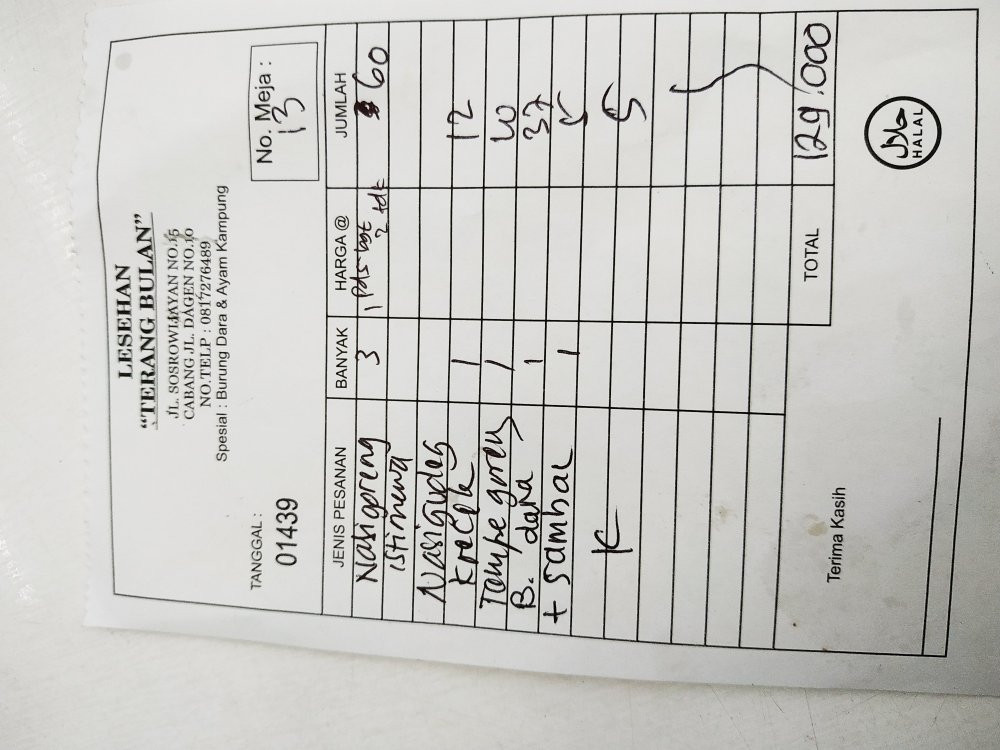 LESEHAN
“TERANG BULAN”
JL. SOSROWIJAYAN NO.15
CABANG.JL. DAGEN NO.10
NO.TELP : 0817276489
Spesial : Burung Dara & Ayam Kampung
TANGGAL :
No. Meja :
13
01439
JENIS PESANAN BANYAK HARGA @ JUMLAH
Nasigoreng 3 1 pds 60
istimewa 2 tdk
Nasigudeg
Krecek 1 12
Tempe goreng 1 10
B. dara 1 37
+ sambal 1 5
K 5
TOTAL 129.000
Terima Kasih
حلال
HALAL